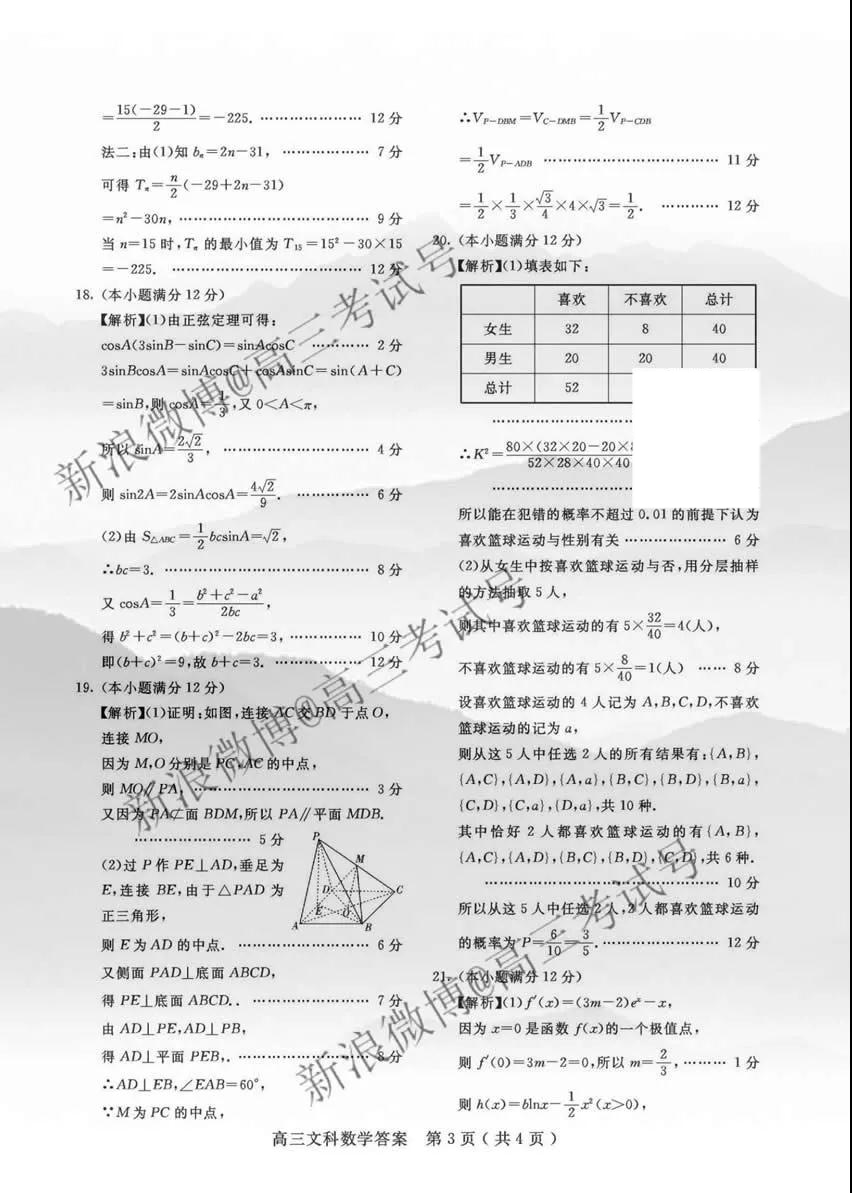 =15(-29-1)/2=-225. ………………… 12 分
法二:由(1)知 bₙ=2n-31, ……………… 7 分
可得 Tₙ=n/2(-29+2n-31)
=n²-30n, ………………………………… 9 分
当 n=15 时,Tₙ 的最小值为 T₁₅=15²-30×15
=-225. ………………………………… 12 分
18. (本小题满分 12 分)
【解析】(1)由正弦定理可得:
cosA(3sinB-sinC)=sinAcosC ………… 2 分
3sinBcosA=sinAcosC+cosAsinC=sin(A+C)
=sinB,则 cosA=1/3,又 0<A<π,
所以 sinA=2√2/3, ………………………… 4 分
则 sin2A=2sinAcosA=4√2/9. …………… 6 分
(2)由 S△ABC=1/2bcsinA=√2,
∴bc=3. ………………………………… 8 分
又 cosA=1/3=(b²+c²-a²)/2bc,
得 b²+c²=(b+c)²-2bc=3, …………… 10 分
即(b+c)²=9,故 b+c=3. ……………… 12 分
19. (本小题满分 12 分)
【解析】(1)证明:如图,连接 AC 交 BD 于点 O,
连接 MO,
因为 M,O 分别是 PC,AC 的中点,
则 MO∥PA, ………………………………… 3 分
又因为 PA⊄面 BDM,所以 PA∥平面 MDB.
…………………… 5 分
(2)过 P 作 PE⊥AD,垂足为
E,连接 BE,由于△PAD 为
正三角形,
P
M
D
C
E
O
A
B
则 E 为 AD 的中点. ……………………… 6 分
又侧面 PAD⊥底面 ABCD,
得 PE⊥底面 ABCD.. ……………………… 7 分
由 AD⊥PE,AD⊥PB,
得 AD⊥平面 PEB,. ……………………… 8 分
∴AD⊥EB,∠EAB=60°,
∵M 为 PC 的中点,
∴V_{P-DBM}=V_{C-DMB}=1/2V_{P-CDB}
=1/2V_{P-ADB} ……………………………… 11 分
=1/2×1/3×√3/4×4×√3=1/2. ………… 12 分
20. (本小题满分 12 分)
【解析】(1)填表如下:
喜欢 不喜欢 总计
女生 32 8 40
男生 20 20 40
总计 52
………………………
∴K²=80×(32×20-20×8/52×28×40×40
………………………
所以能在犯错的概率不超过 0.01 的前提下认为
喜欢篮球运动与性别有关 ………………… 6 分
(2)从女生中按喜欢篮球运动与否,用分层抽样
的方法抽取 5 人,
则其中喜欢篮球运动的有 5×32/40=4(人),
不喜欢篮球运动的有 5×8/40=1(人) …… 8 分
设喜欢篮球运动的 4 人记为 A,B,C,D,不喜欢
篮球运动的记为 a,
则从这 5 人中任选 2 人的所有结果有:{A,B},
{A,C},{A,D},{A,a},{B,C},{B,D},{B,a},
{C,D},{C,a},{D,a},共 10 种.
其中恰好 2 人都喜欢篮球运动的有{A,B},
{A,C},{A,D},{B,C},{B,D},{C,D},共 6 种.
………………………………………… 10 分
所以从这 5 人中任选 2 人,2 人都喜欢篮球运动
的概率为 P=6/10=3/5. …………………… 12 分
21. (本小题满分 12 分)
【解析】(1)f′(x)=(3m-2)eˣ-x,
因为 x=0 是函数 f(x)的一个极值点,
则 f′(0)=3m-2=0,所以 m=2/3, ……… 1 分
则 h(x)=blnx-1/2x²(x>0),
高三文科数学答案 第 3 页( 共 4 页 )
新浪微博@高三考试号
新浪微博@高三考试号
新浪微博@高三考试号